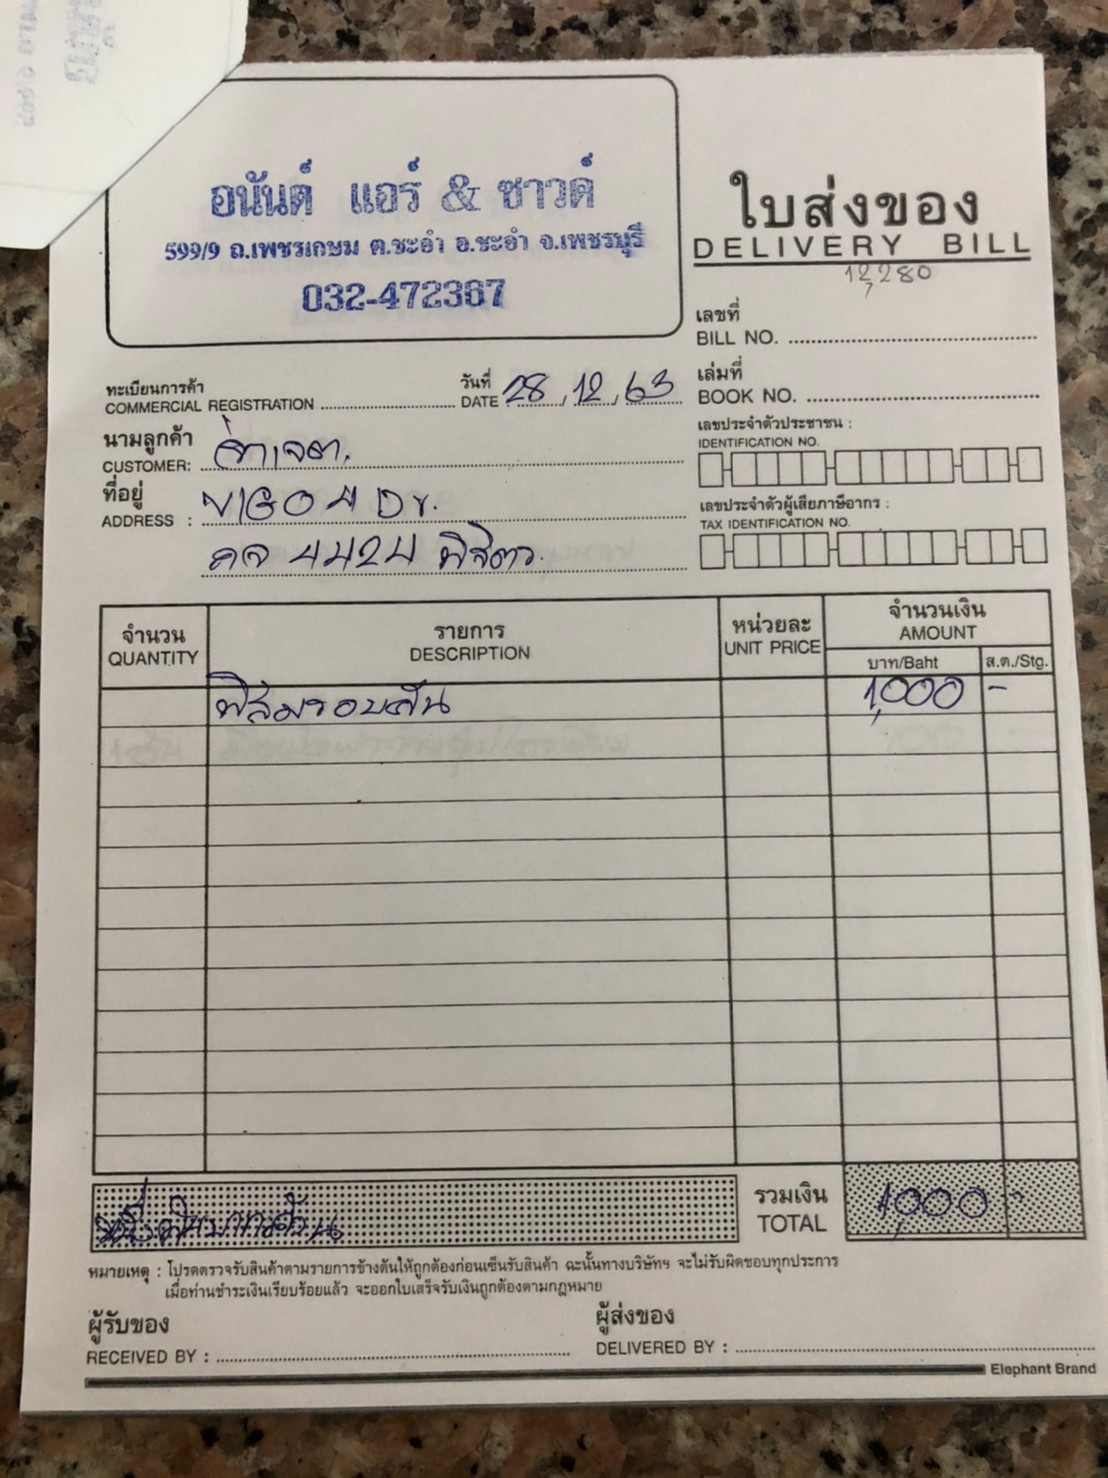 อนันต์ แอร์ & ซาวด์
599/9 ถ.เพชรเกษม ต.ชะอำ อ.ชะอำ จ.เพชรบุรี
032-472367
ใบส่งของ
DELIVERY BILL
12,280
เลขที่
BILL NO.
ทะเบียนการค้า
COMMERCIAL REGISTRATION
วันที่
DATE 28, 12, 63
เล่มที่
BOOK NO.
นามลูกค้า
CUSTOMER:
เลขประจำตัวประชาชน :
IDENTIFICATION NO.
ที่อยู่
ADDRESS : VIGO 4 Dr.
4424 พิจิตร.
เลขประจำตัวผู้เสียภาษีอากร :
TAX IDENTIFICATION NO.
จำนวน
QUANTITY
รายการ
DESCRIPTION
หน่วยละ
UNIT PRICE
จำนวนเงิน
AMOUNT
บาท/Baht
ส.ต./Stg.
ฟิล์มรอบคัน 1,000 -
หนึ่งพันบาทถ้วน
รวมเงิน
TOTAL
1,000 -
หมายเหตุ : โปรดตรวจรับสินค้าตามรายการข้างต้นให้ถูกต้องก่อนเซ็นรับสินค้า ฉะนั้นทางบริษัทฯ จะไม่รับผิดชอบทุกประการ
เมื่อท่านชำระเงินเรียบร้อยแล้ว จะออกใบเสร็จรับเงินถูกต้องตามกฎหมาย
ผู้รับของ
RECEIVED BY :
ผู้ส่งของ
DELIVERED BY :
Elephant Brand